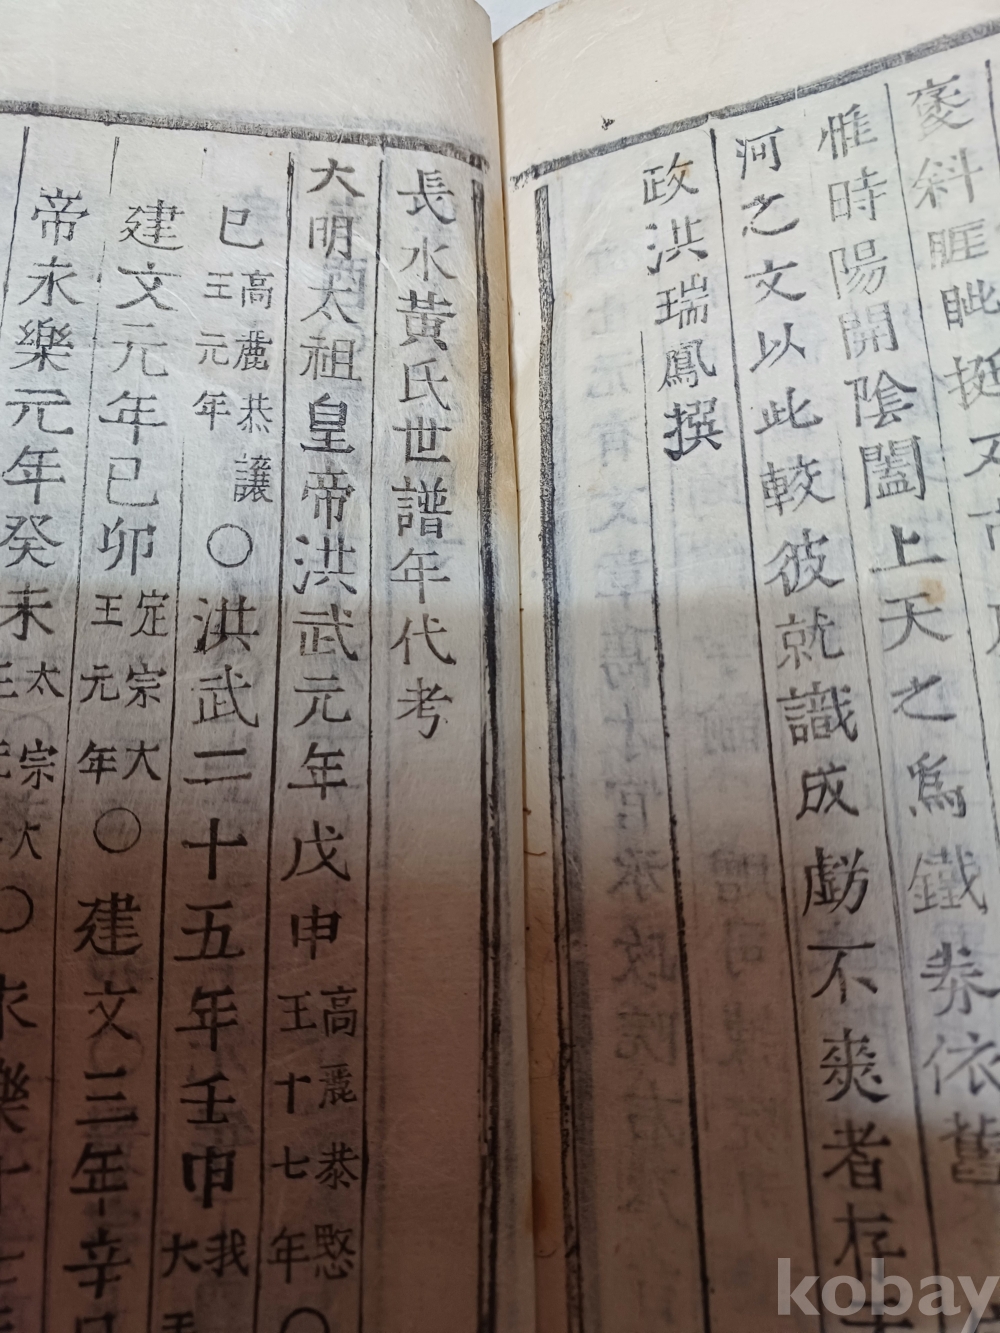 褒斜睚眦挺又古
惟時陽開陰闔上天之爲鐵券依舊
河之文以此較彼就識成虧不爽者存
政洪瑞鳳撰
長水黃氏世譜年代考
大明太祖皇帝洪武元年戊申高麗恭愍王十七年○
巳高麗恭讓王元年○洪武二十五年壬申我大
建文元年己卯定宗大王元年○建文三年辛巳
帝永樂元年癸未太宗大王○永樂十
kobay